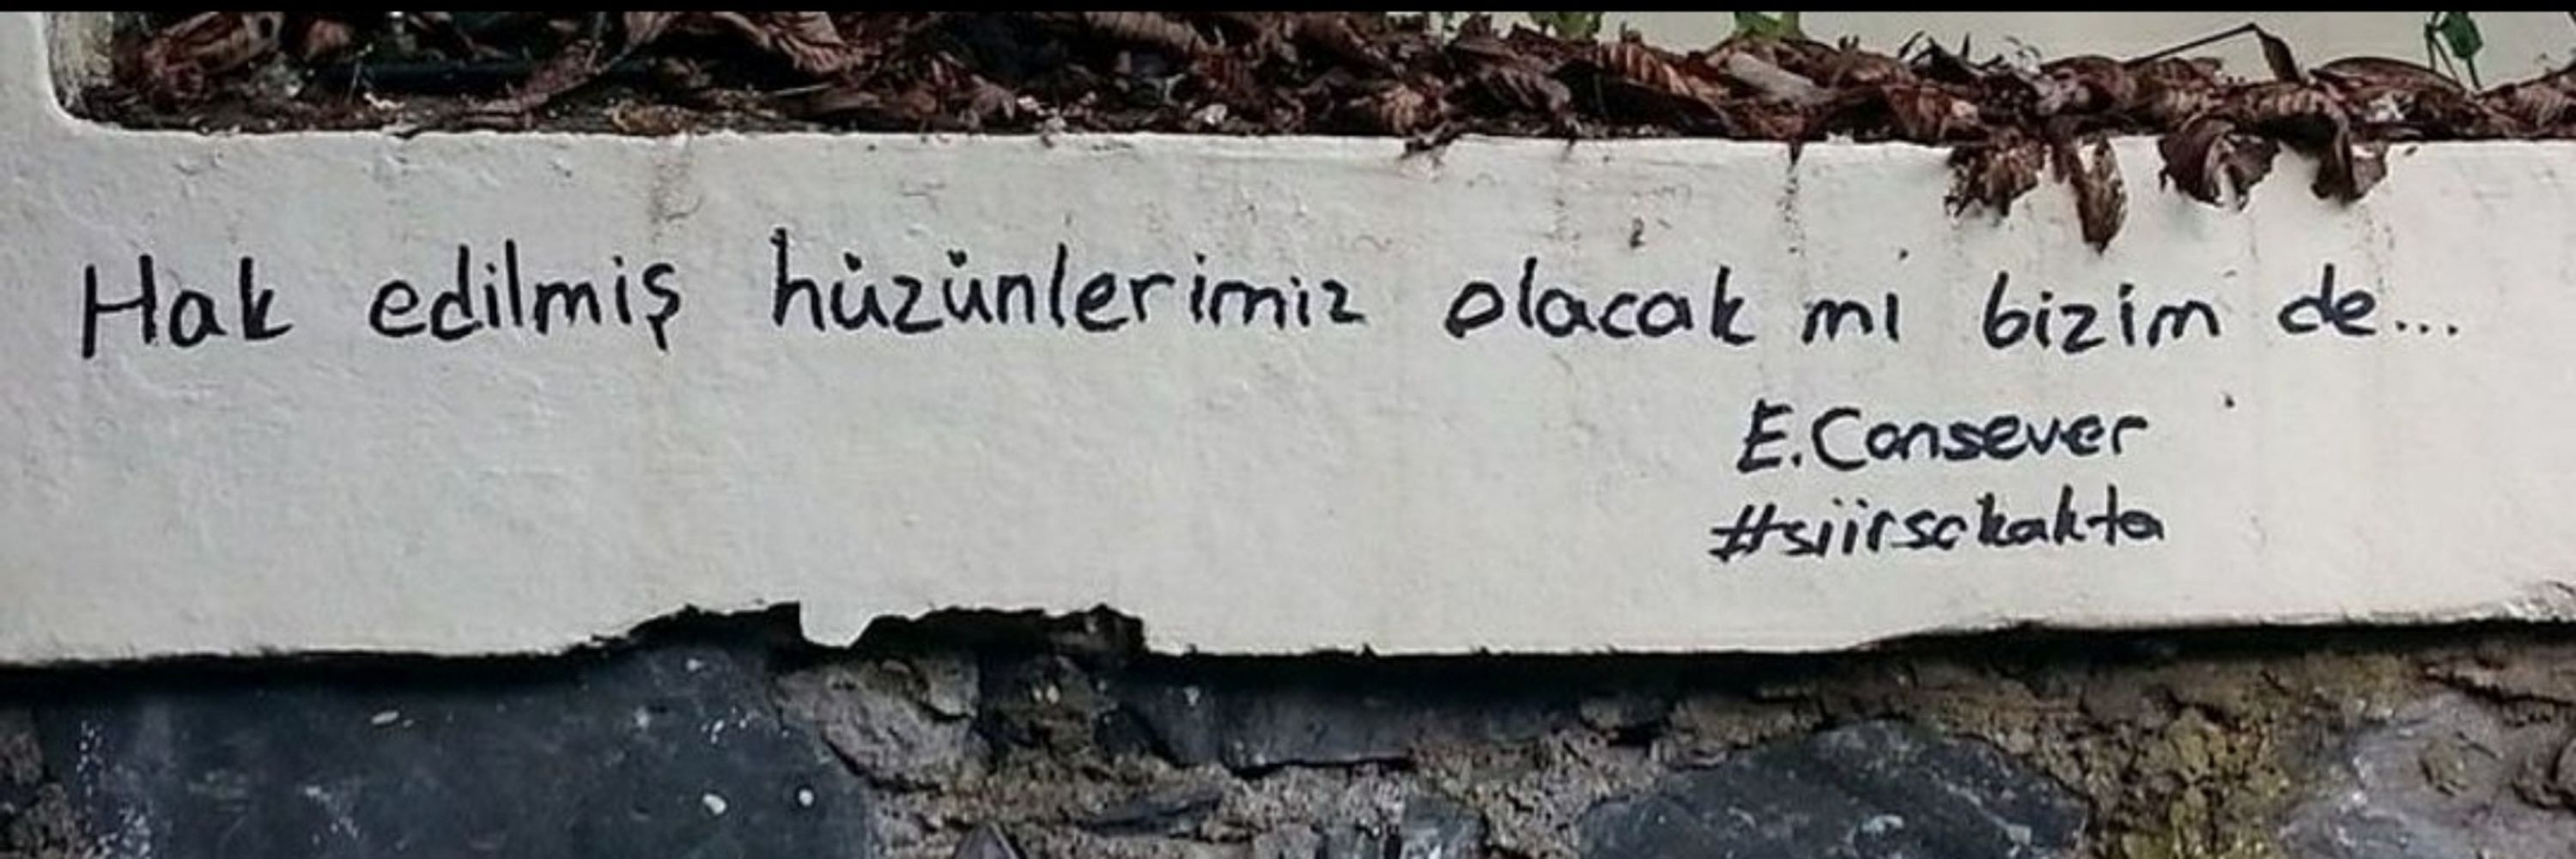 Hak edilmiş hüzünlerimiz olacak mı bizim de...
E.Cansever
#siirsokakta